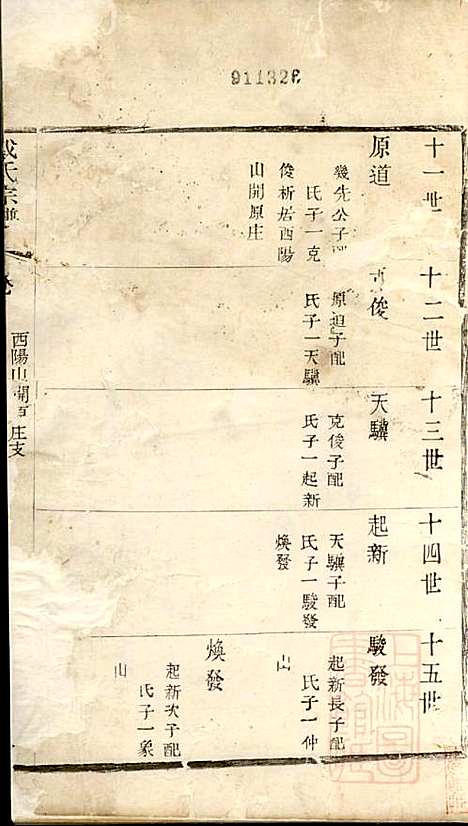 911326
十一世
原道
幾先公子配
氏子一克
俊析居酉陽
山開原庄
十二世
俊
原道子配
氏子一天驥
十三世
天驥
克俊子配
氏子一起新
十四世
起新
天驥子配
氏子一駿發
煥發
十五世
駿發
起新長子配
氏子一仲
山
煥發
起新次子配
氏子一象
山
戴氏宗譜
卷
酉陽山開原庄支